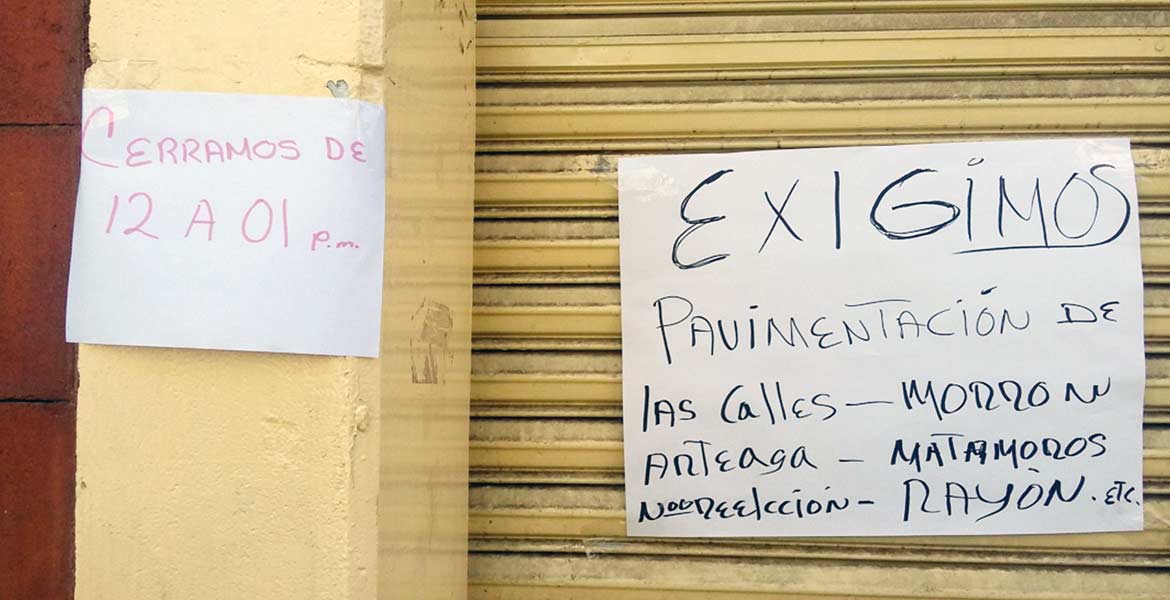 CERRAMOS DE
12 A 01 p.m.
EXIGIMOS
PAVIMENTACIÓN DE
LAS Calles — MORROW
ARTEAGA — MATAMOROS
REELECCIÓN — RAYÓN. ETC.